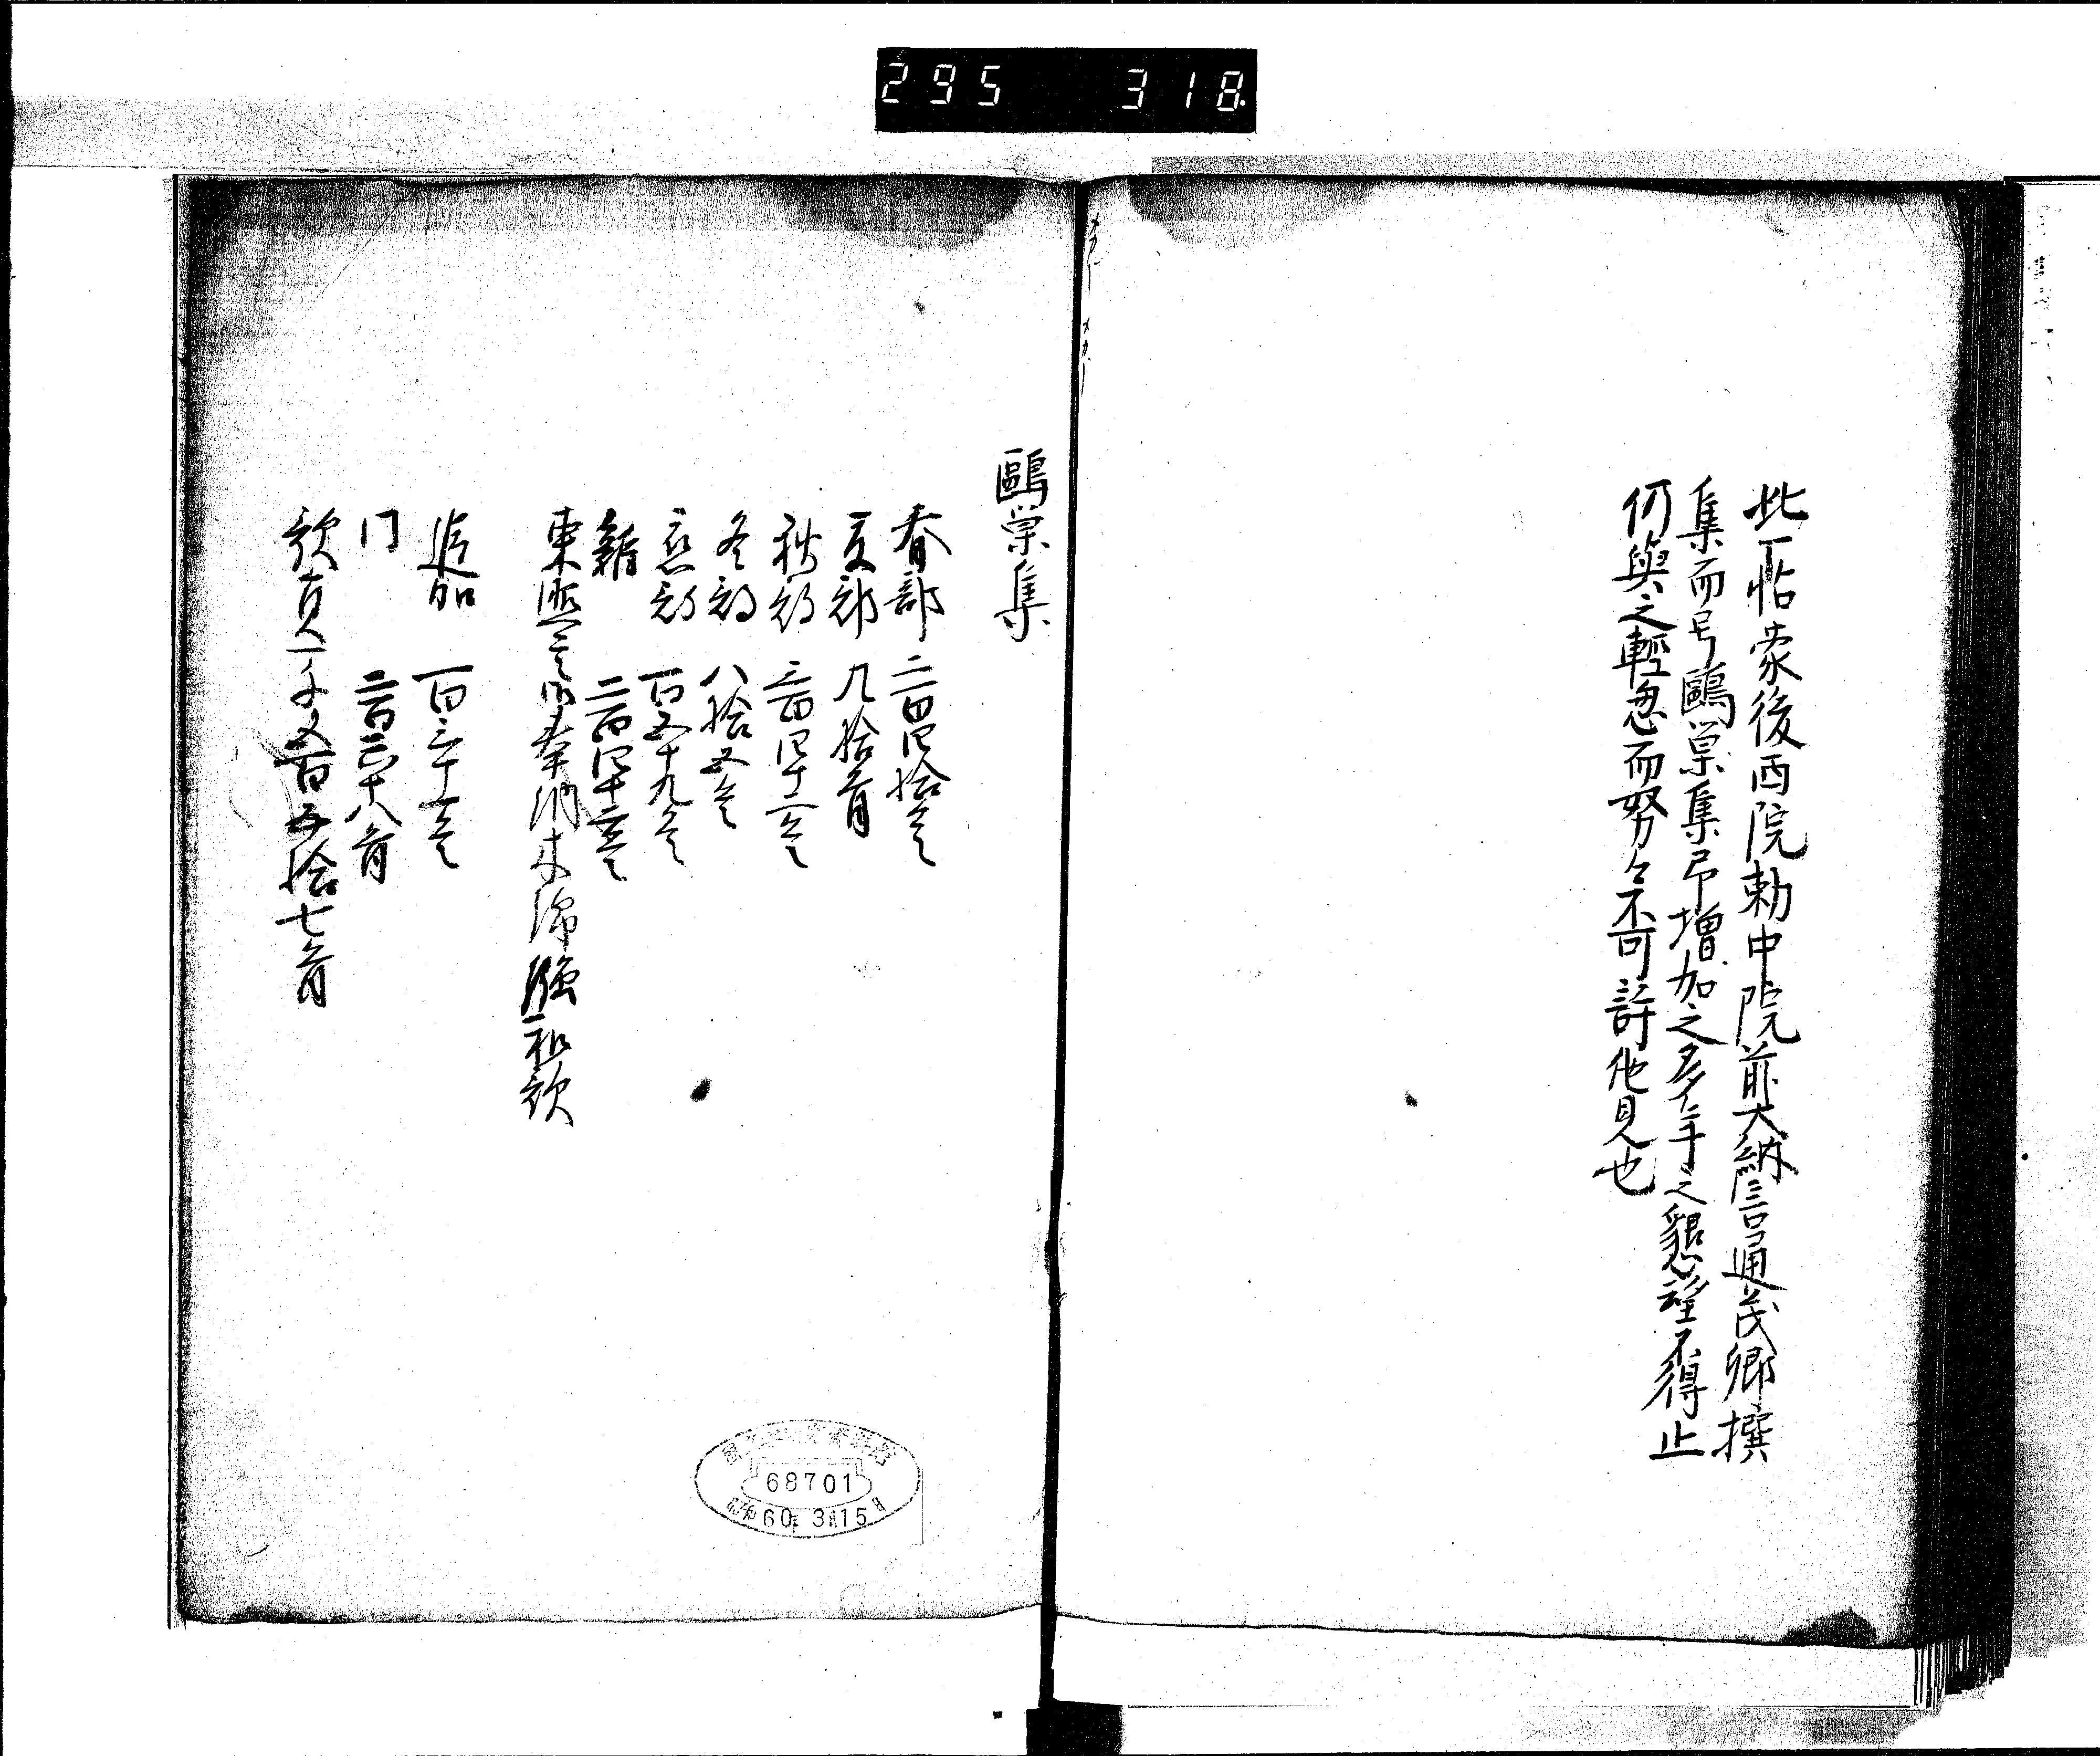 295 318
此一帖蒙後西院勅中院前大納言通茂卿撰
集而号鷗巣集帋増加之多年之懇望不得止
仍與之輕忽而努々不可許他見也
鷗巣集
春部 二百四拾首
夏部 九拾首
秋部 二百四十二首
冬部 八拾五首
恋部 百五十九首
雑 二百四十三首
東照宮御奉納
追加 百三十一首
同 二百二十八首
歌員千五百五拾七首
68701
昭和60年3月15日